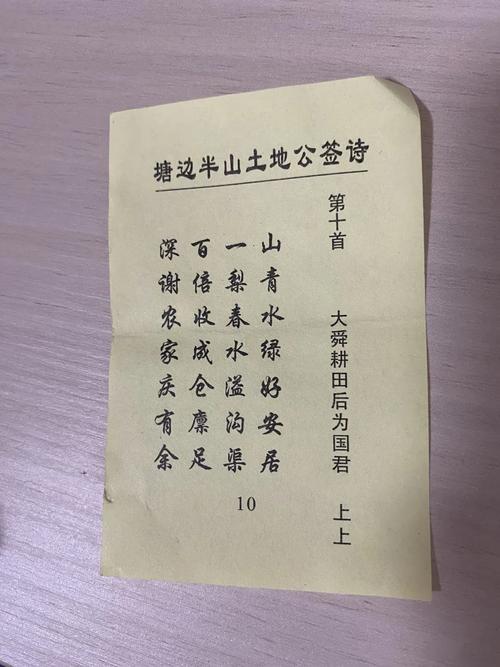 塘边半山土地公签诗
第十首 大舜耕田后为国君 上上
山青水绿好安居
一梨春水溢沟渠
百倍收成仓廪足
深谢农家庆有余
10